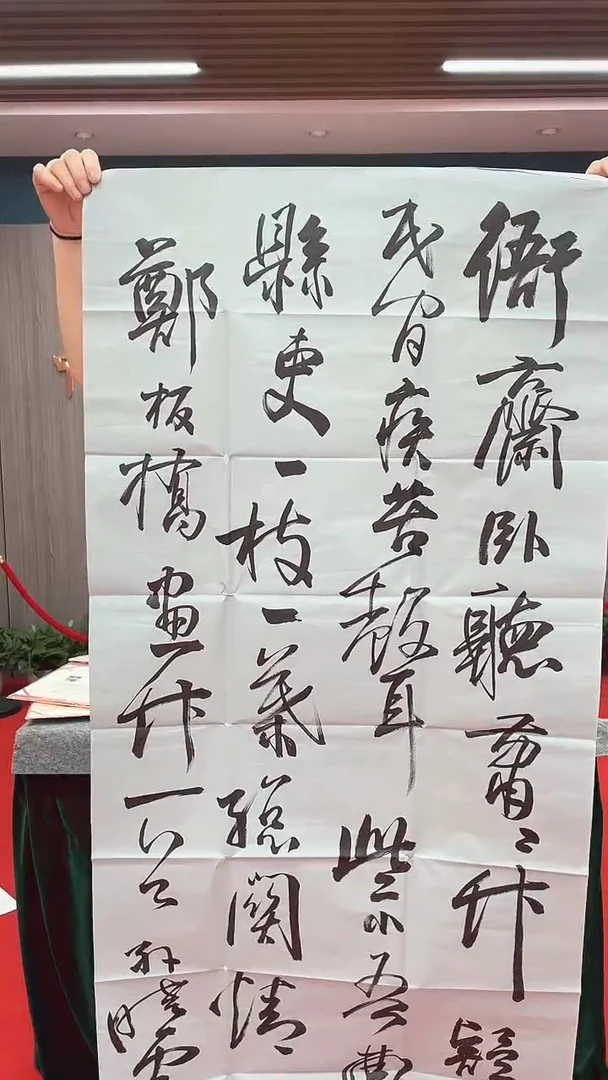 衙齋卧聽蕭〻竹疑
民間疾苦聲些小吾曹
縣吏一枝一葉總關情
鄭板橋畫竹一 孫曉雲